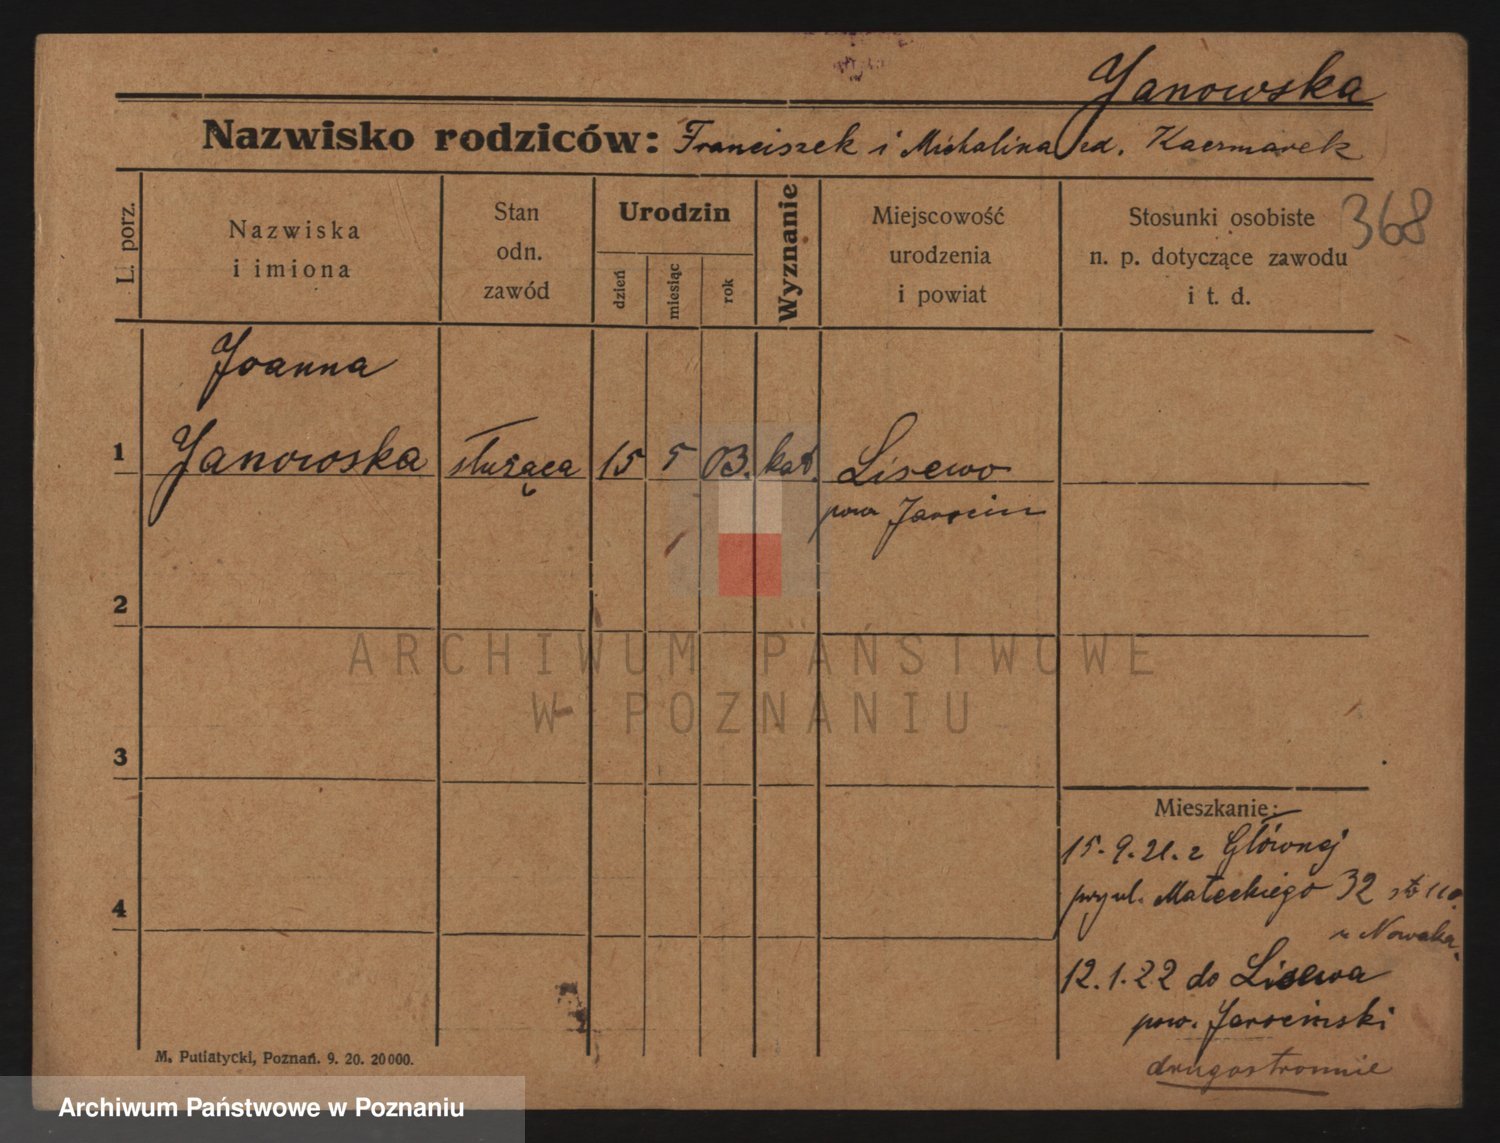 Janowska
Nazwisko rodziców: Franciszek i Michalina zd. Kaczmarek
368
L. porz.
Nazwiska
i imiona
Stan
odn.
zawód
Urodzin
dzień
miesiąc
rok
Wyznanie
Miejscowość
urodzenia
i powiat
Stosunki osobiste
n. p. dotyczące zawodu
i t. d.
Joanna
1 Janowska służąca 15 5 03. kat. Lisewo
pow Jarocin
2
ARCHIWUM PAŃSTWOWE
W POZNANIU
3
Mieszkanie:
15.9.21. z Głównej
przy ul. Małeckiego 32
4
u Nowaka
12.1.22 do Lisewa
pow. Jarocinski
drugostronnie
M. Putiatycki, Poznań. 9. 20. 20000.
Archiwum Państwowe w Poznaniu